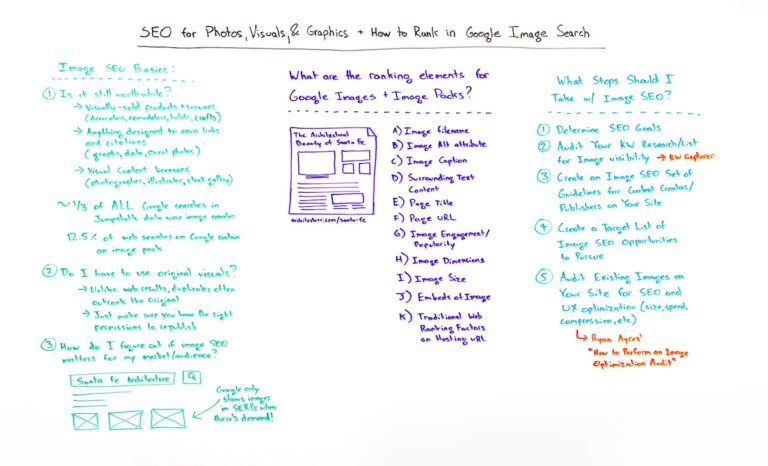 SEO for Photos, Visuals, & Graphics + How to Rank in Google Image Search
Image SEO Basics:
① Is it still worthwhile?
→ Visually-sold products + services
(decorators, remodelers, hotels, crafts)
→ Anything designed to earn links
and citations
(graphs, data, event photos)
→ Visual Content licensors
(photographer, illustrator, chart gallery)
~1/3 of ALL Google searches in
Jumpshot's data were image searches
12.5% of web searches on Google contain
an image pack
② Do I have to use original visuals?
→ Unlike web results, duplicates often
outrank the original
→ Just make sure you have the right
permissions to republish
③ How do I figure out if image SEO
matters for my market/audience?
Santa Fe Architecture
Google only
shows images
in SERPs when
there's demand!
What are the ranking elements for
Google Images + Image Packs?
The Architectural
Beauty of Santa Fe
architecture.com/santa-fe
A) Image filename
B) Image Alt attribute
C) Image Caption
D) Surrounding Text
Content
E) Page Title
F) Page URL
G) Image Engagement/
Popularity
H) Image Dimensions
I) Image Size
J) Embeds of Image
K) Traditional Web
Ranking Factors
on Hosting URL
What Steps Should I
Take w/ Image SEO?
① Determine SEO Goals
② Audit Your KW Research/List
for Image visibility → KW Explorer
③ Create an Image SEO Set of
Guidelines for Content Creators/
Publishers on Your Site
④ Create a Target List of
Image SEO Opportunities
to Pursue
⑤ Audit Existing Images on
Your Site for SEO and
UX optimization (size, speed,
compression, etc)
↳ Ryan Ayres'
"How to Perform an Image
Optimization Audit"